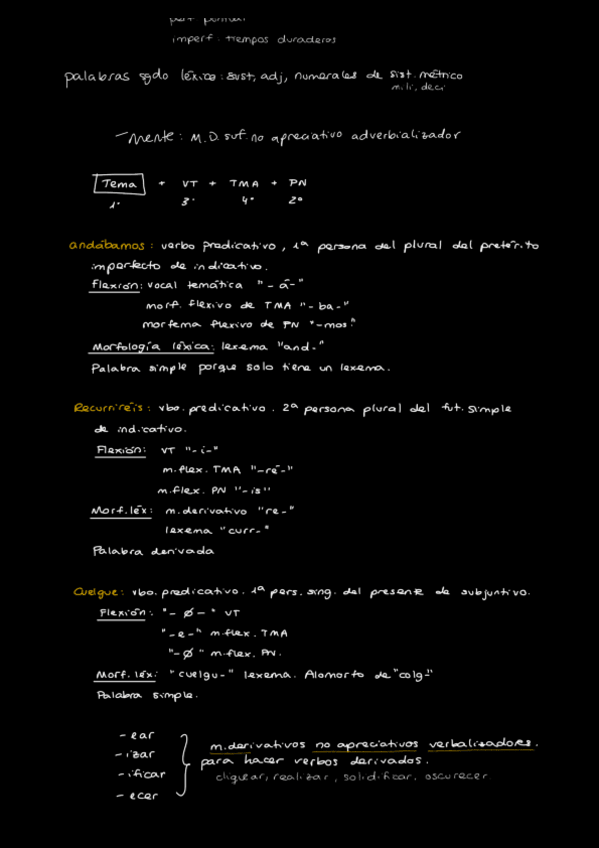 perf. puntual
imperf. tiempos duraderos
palabras sgdo léxico: sust, adj, numerales de sist. métrico
mili, deci
-mente: M.D. suf. no apreciativo adverbializador
Tema + VT + TMA + PN
1º 3º 4º 2º
andábamos: verbo predicativo, 1ª persona del plural del pretérito
imperfecto de indicativo.
Flexión: vocal temática "-á-"
morf. flexivo de TMA "-ba-"
morfema flexivo de PN "-mos"
Morfología léxica: lexema "and-"
Palabra simple porque solo tiene un lexema.
Recurriréis: vbo. predicativo. 2ª persona plural del fut. simple
de indicativo.
Flexión: VT "-i-"
m.flex. TMA "-ré-"
m.flex. PN "-is"
Morf. léx: m.derivativo "re-"
lexema "curr-"
Palabra derivada
Cuelgue: vbo. predicativo. 1ª pers. sing. del presente de subjuntivo.
Flexión: "-ø-" VT
"-e-" m.flex. TMA
"-ø" m.flex. PN.
Morf. léx: "cuelgu-" lexema. Alomorfo de "colg-"
Palabra simple.
-ear
-izar
-ificar
-ecer
m.derivativos no apreciativos verbalizadores.
para hacer verbos derivados.
cliquear, realizar, solidificar, oscurecer